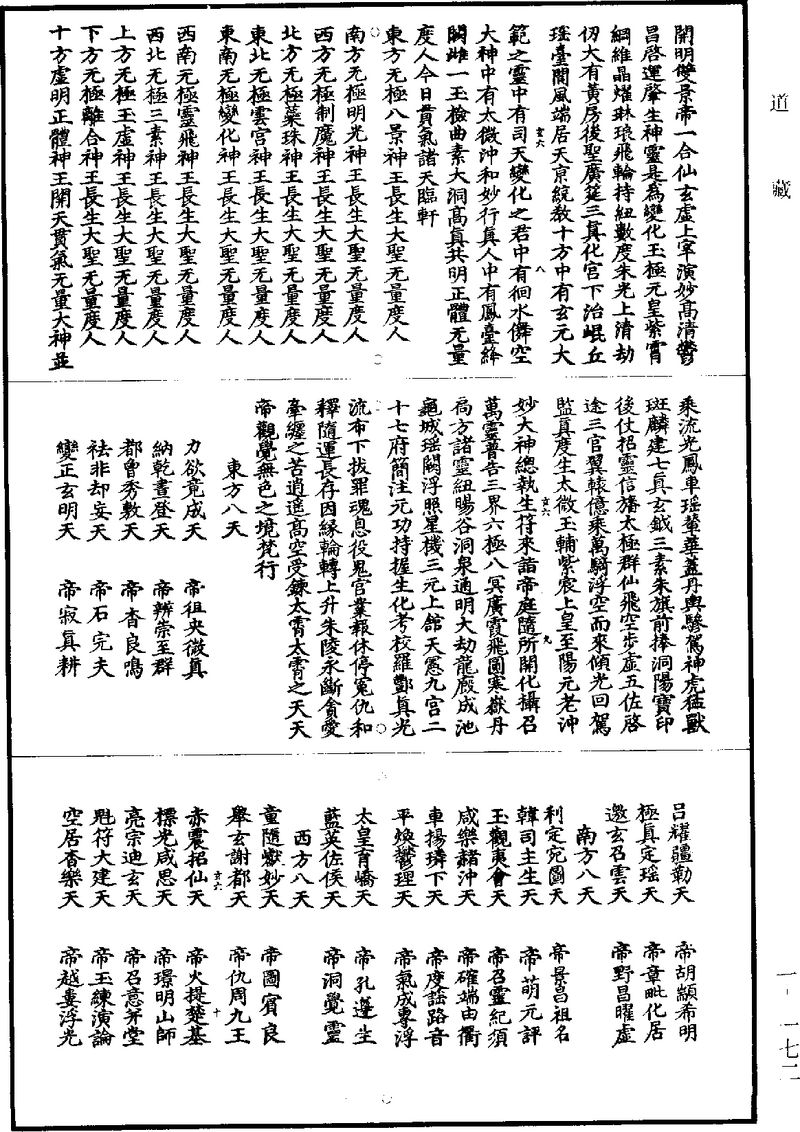 道藏
開明雙景帝一合仙玄虛上宰演妙高清鬱
昌啓運肇生神靈是為變化玉極元皇紫霄
綱維晶燿琳琅飛輪持紐數度朱光上清劫
仞大有黃房後聖廣筵三真化宮下治崐丘
瑤臺閬風端居天京統教十方中有玄元大
範之靈中有司天變化之君中有徊水儛空
大神中有太微沖和妙行真人中有鳳臺絳
闕雌一玉檢曲素大洞高真共明正體无量
度人今日貫氣諸天臨軒
東方无極八景神王長生大聖无量度人
南方无極明光神王長生大聖无量度人
西方无極制魔神王長生大聖无量度人
北方无極蘂珠神王長生大聖无量度人
東北无極雲宮神王長生大聖无量度人
東南无極變化神王長生大聖无量度人
西南无極靈飛神王長生大聖无量度人
西北无極三素神王長生大聖无量度人
上方无極玉虛神王長生大聖无量度人
下方无極離合神王長生大聖无量度人
十方虛明正體神王開天貫氣无量大神並
乘流光鳳車瑤輦華蓋丹輿驂駕神虎猛獸
斑麟建七真玄鉞三素朱旗前捧洞陽寶印
後仗招靈信旛太極群仙飛空步虛五佐啓
途三官翼轅億乘萬騎浮空而來傾光回駕
監真度生太微玉輔紫宸上皇至陽元老沖
妙大神總執生符來詣帝庭隨所開化攝召
萬靈普告三界六極八冥廣霞飛圖寒嶽丹
扃方諸靈紐暘谷洞泉通明大劫龍廄成池
龜城瑤闕浮照星機三元上館天憲九宮二
十七府簡注元功持握生化考校羅酆真光
流布下拔罪魂息役鬼官業報休停冤仇和
釋隨運長存因緣輪轉上升朱陵永斷貪愛
牽纏之苦逍遙高空受鍊太霄太霄之天天
帝觀覺無色之境梵行
東方八天
力欲竟成天 帝祖央微真
納乾晝登天 帝辨崇至群
都曾秀敷天 帝杳良鳴
祛非却妄天 帝石完夫
變正玄明天 帝寂真耕
呂襬疆勤天 帝胡顯希明
極真定瑤天 帝章毗化居
邀玄召雲天 帝野昌曜虛
南方八天
利定宛圖天 帝景昌祖名
韓司主生天 帝萌元評
玉觀夷會天 帝召靈紀須
咸樂赭沖天 帝確端由衢
車揚璘下天 帝度謠路音
平煥鬱理天 帝氣成專浮
太皇育嶠天 帝孔邊生
藍英佐俟天 帝洞覺靈
西方八天
童隨嶽妙天 帝圖賓良
舉玄謝都天 帝仇周九王
赤震招仙天 帝火提楚基
標光咸思天 帝璟明山師
亮宗迪玄天 帝召意并堂
魁符大建天 帝玉練演論
空居杳樂天 帝越婁浮光
一-一七二